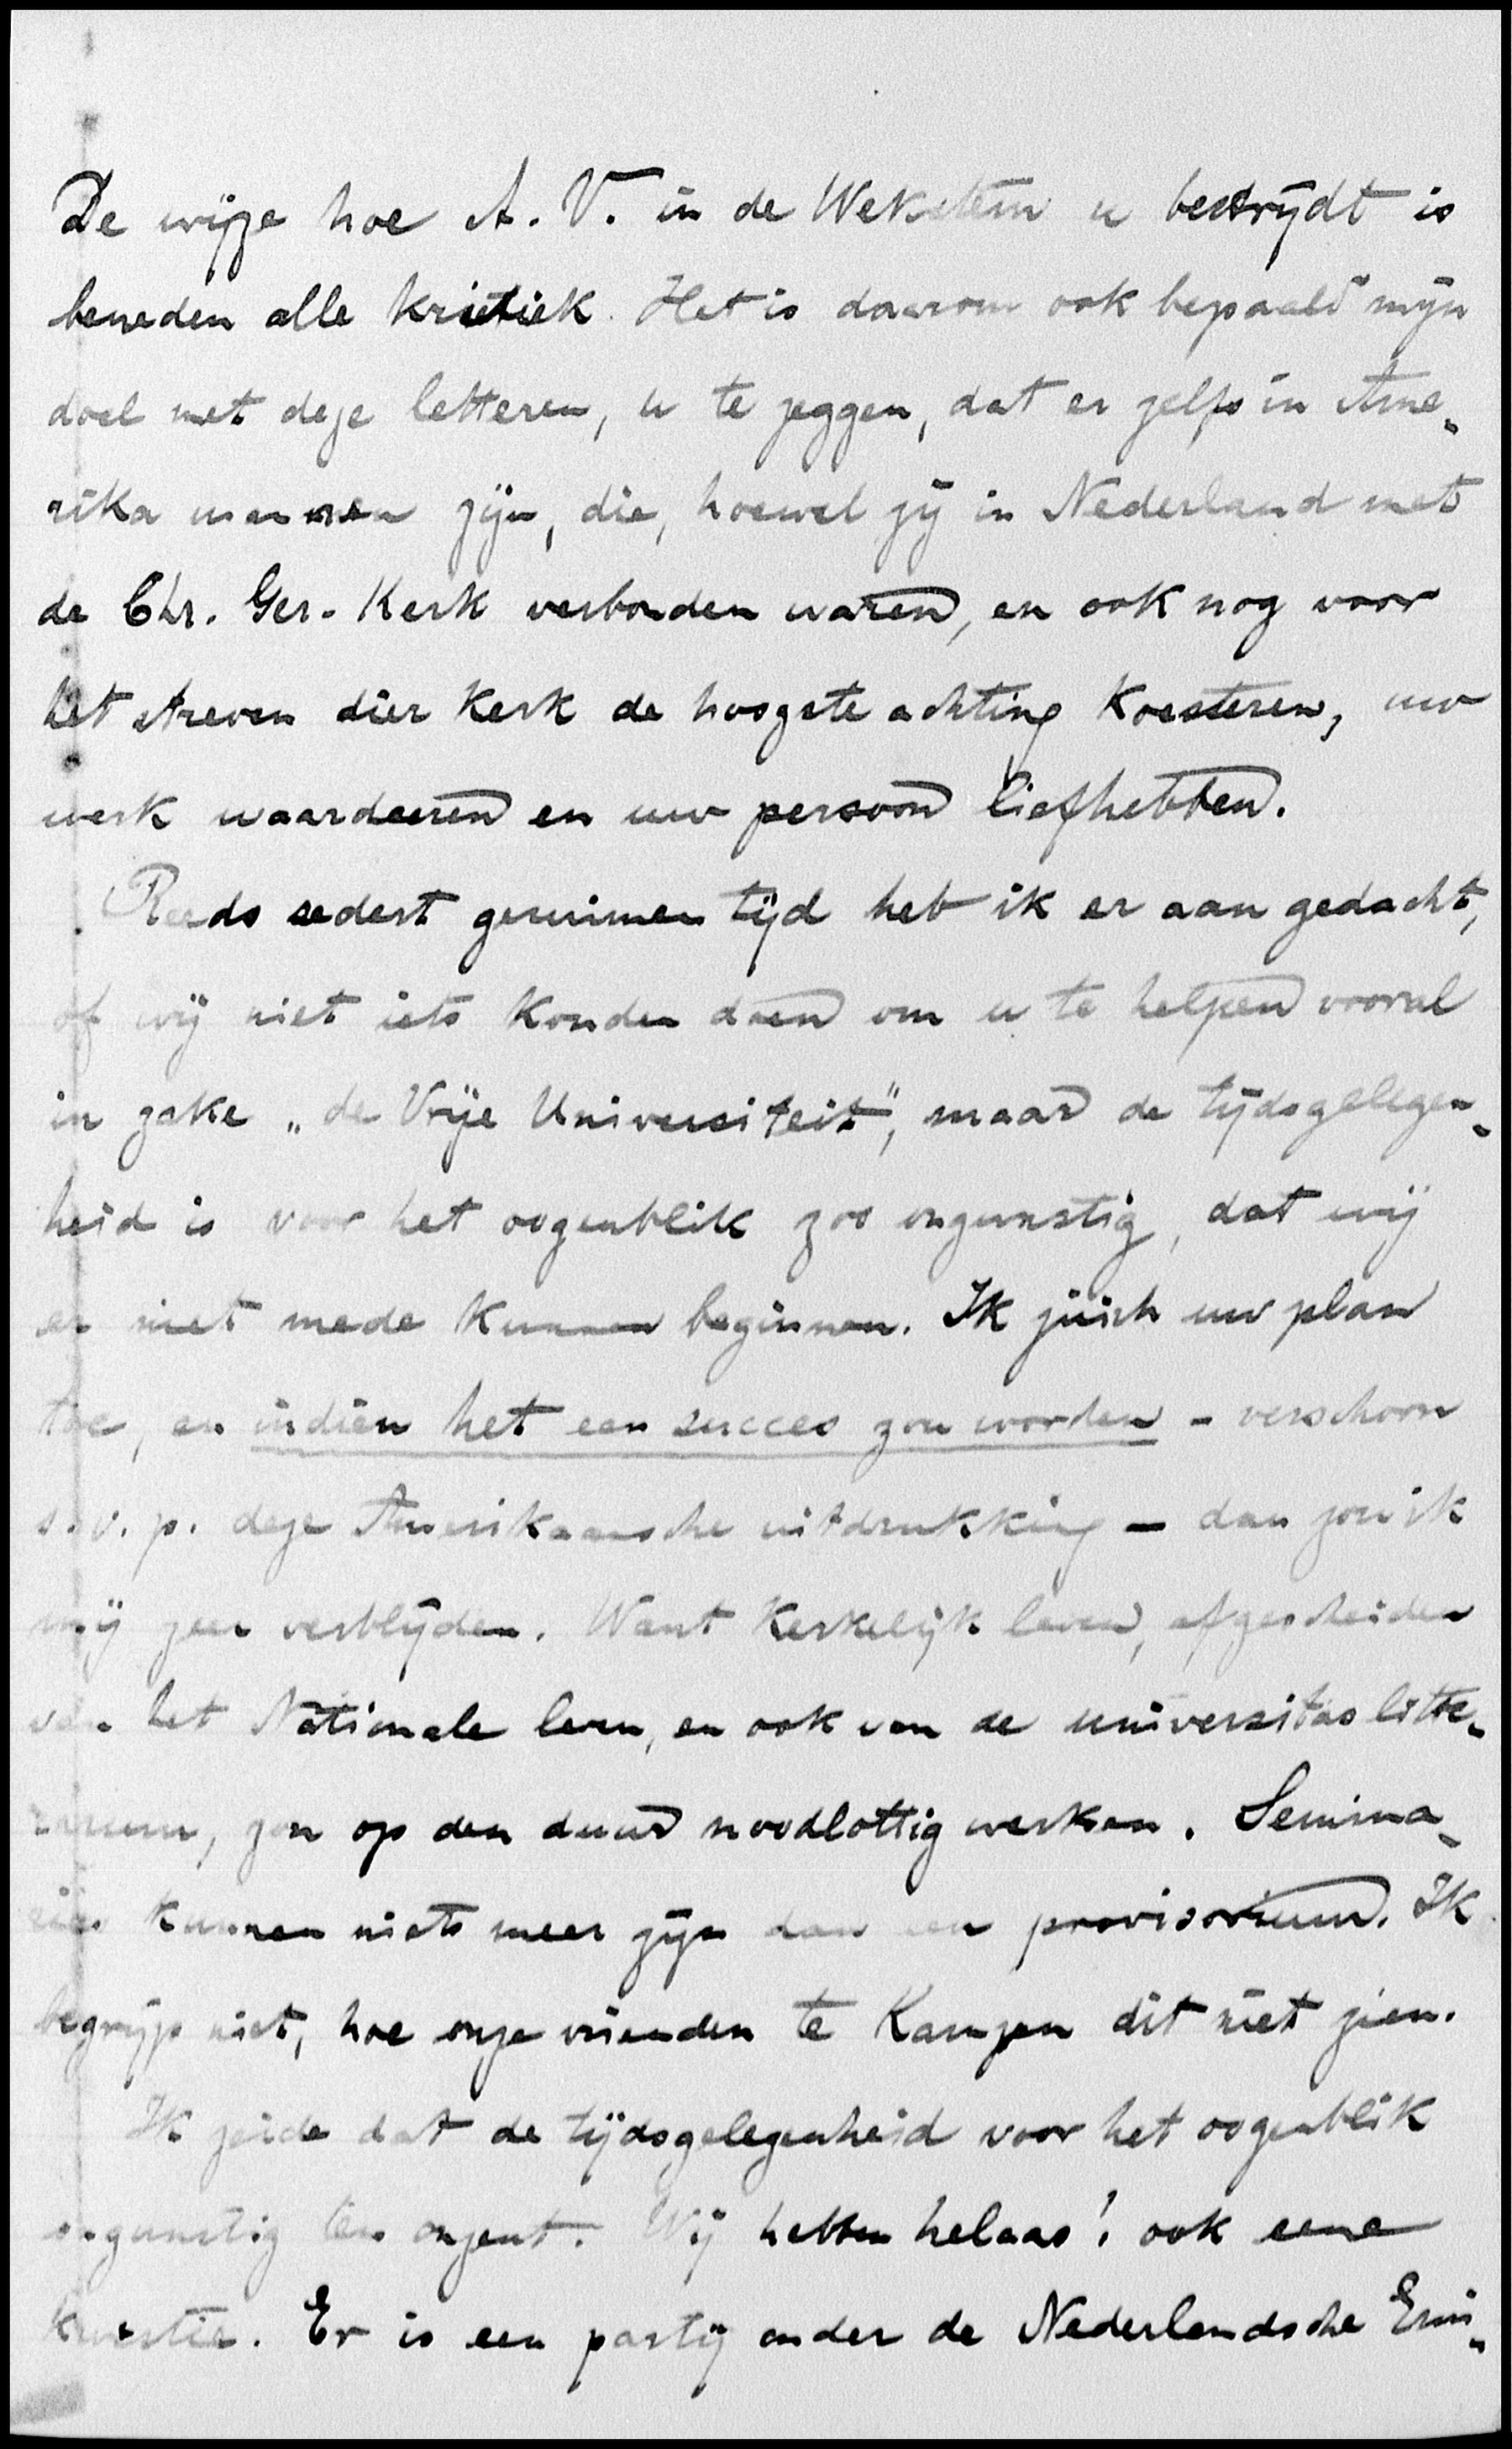 De wijze hoe A. V. in de Wekstem u bestrijdt is
beneden alle kritiek. Het is daarom ook bepaald mijn
doel met deze letteren, u te zeggen, dat er zelfs in Ame-
rika mannen zijn, die, hoewel zij in Nederland met
de Chr. Ger. Kerk verbonden waren, en ook nog voor
het streven dier Kerk de hoogste achting koesteren, uw
werk waardeeren en uw persoon liefhebben.
Reeds sedert geruimen tijd heb ik er aan gedacht,
of wij niet iets konden doen om u te helpen vooral
in zake „de Vrije Universiteit", maar de tijdsgelegen-
heid is voor het oogenblik zoo ongunstig, dat wij
er niet mede kunnen beginnen. Ik juich uw plan
toe, en indien het een succes zou worden - verschoon
s.v.p. deze Amerikaansche uitdrukking - dan zou ik
mij zeer verblijden. Want Kerkelijk leven, afgescheiden
van het Nationale leven, en ook van de universitas litte-
rarum, zou op den duur noodlottig werken. Semina-
ries kunnen niets meer zijn dan een provisorium. Ik
begrijp niet, hoe onze vrienden te Kampen dit niet zien.
Ik zeide dat de tijdsgelegenheid voor het oogenblik
ongunstig is. Wij hebben helaas! ook eene
kwestie. Er is een partij onder de Nederlandsche Emi-